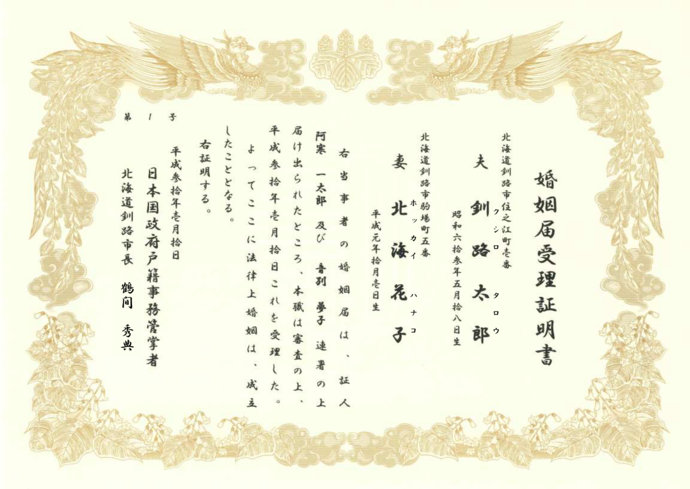 婚姻届受理証明書
北海道釧路市住之江町壱番
夫 釧路 太郎
クシロ タロウ
昭和六拾参年五月拾八日生
北海道釧路市駒場町五番
妻 北海 花子
ホッカイ ハナコ
平成元年拾月壱日生
右当事者の婚姻届は、証人
阿寒 一太郎 及び 音別 夢子 連署の上
届け出られたところ、本職は審査の上、
平成参拾年壱月拾日これを受理した。
よってここに法律上婚姻は、成立
したこととなる。
右証明する。
平成参拾年壱月拾日
日本国政府戸籍事務管掌者
北海道釧路市長 鶴間 秀典
第 1 号